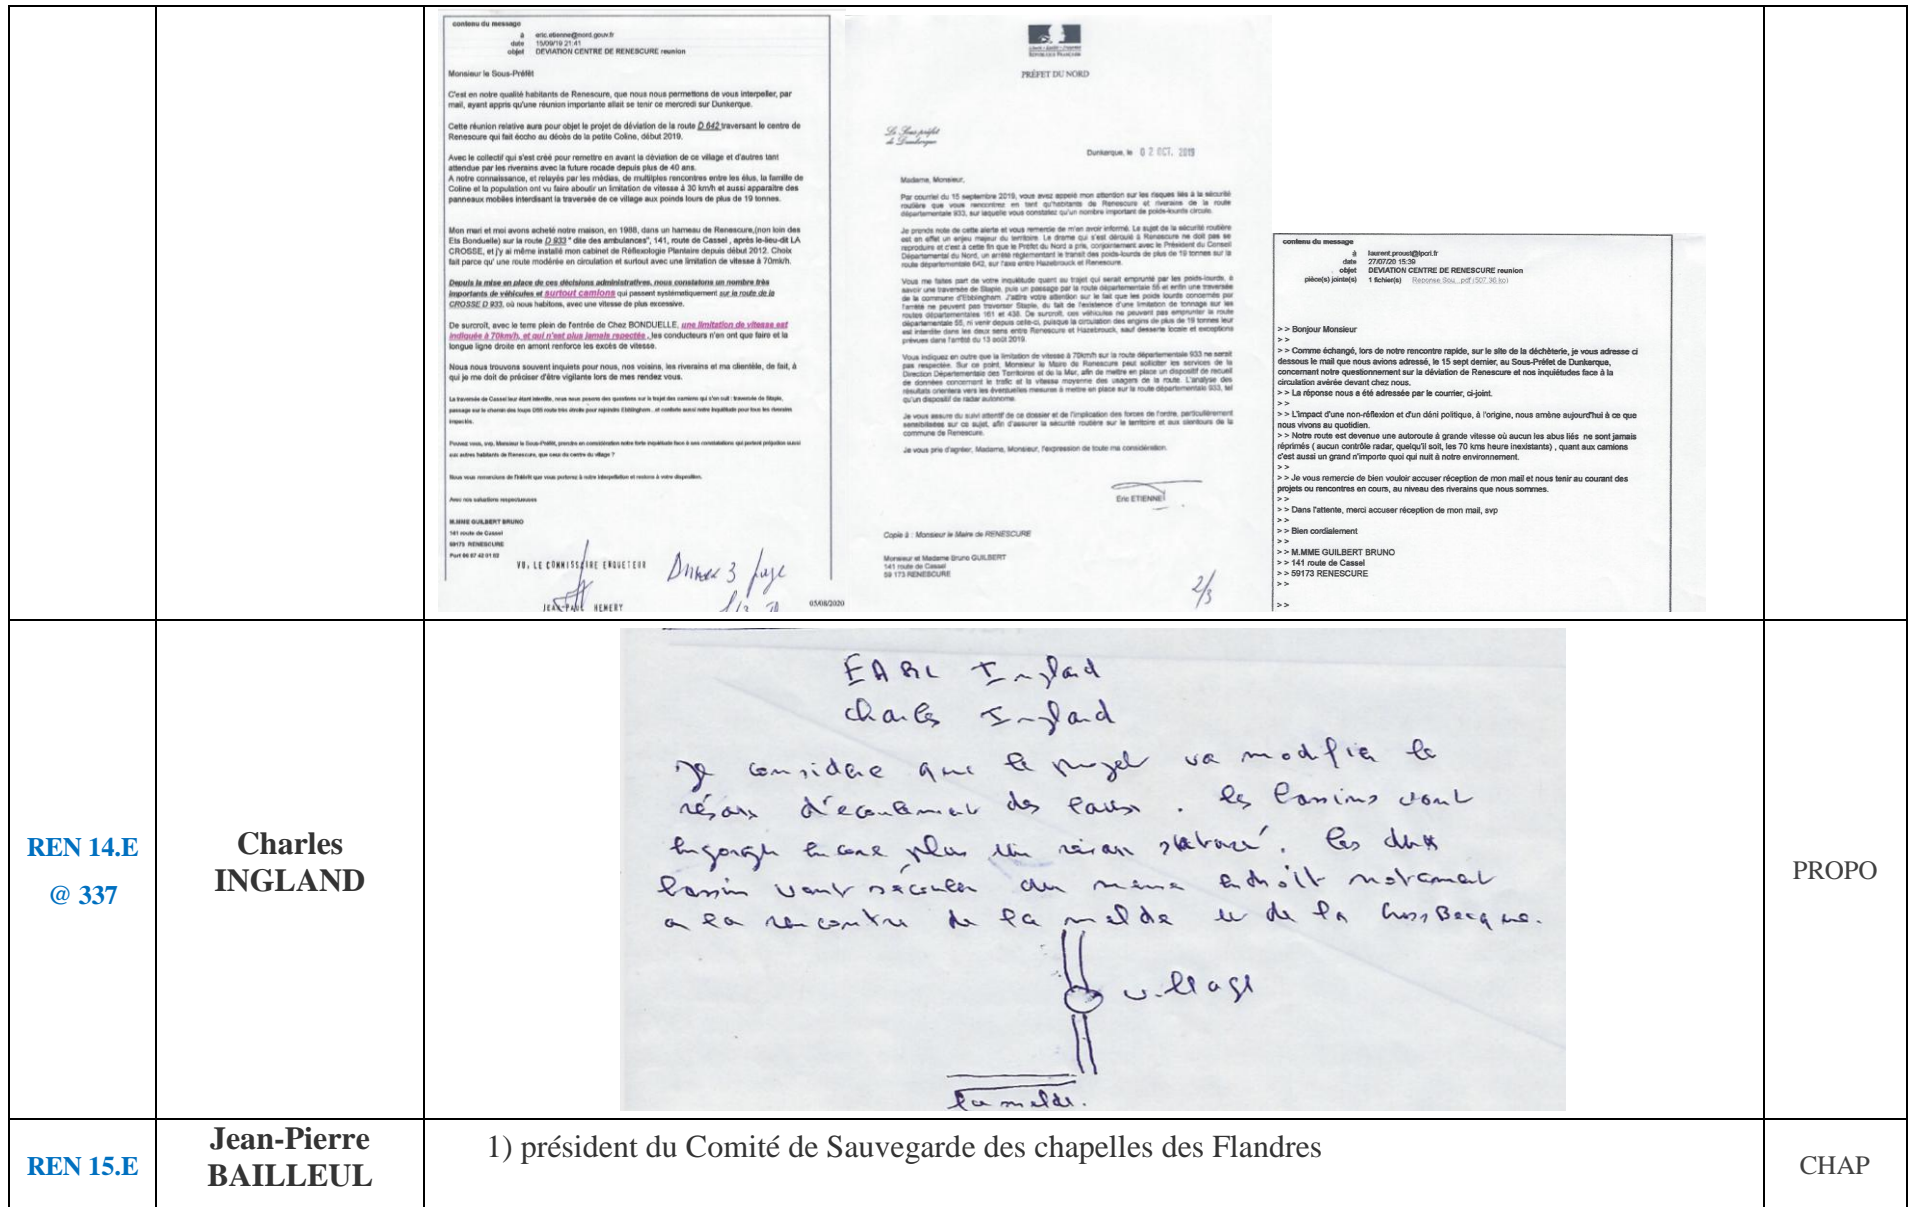 contenu du message
à eric.etienne@nord.gouv.fr
date 15/09/19 21:41
objet DEVIATION CENTRE DE RENESCURE reunion
Monsieur le Sous-Préfêt
C'est en notre qualité habitants de Renescure, que nous nous permettons de vous interpeller, par
mail, ayant appris qu'une réunion importante allait se tenir ce mercredi sur Dunkerque.
Cette réunion relative aura pour objet le projet de déviation de la route D 642 traversant le centre de
Renescure qui fait éccho au décès de la petite Coline, début 2019.
Avec le collectif qui s'est créé pour remettre en avant la déviation de ce village et d'autres tant
attendue par les riverains avec la future rocade depuis plus de 40 ans.
A notre connaissance, et relayés par les médias, de multiples rencontres entre les élus, la famille de
Coline et la population ont vu faire aboutir un limitation de vitesse à 30 km/h et aussi apparaitre des
panneaux mobiles interdisant la traversée de ce village aux poinds lours de plus de 19 tonnes.
Mon mari et moi avons acheté notre maison, en 1988, dans un hameau de Renescure,(non loin des
Ets Bonduelle) sur la route D 933 " dite des ambulances", 141, route de Cassel , après le-lieu-dit LA
CROSSE, et j'y ai même installé mon cabinet de Réflexologie Plantaire depuis début 2012. Choix
fait parce qu' une route modérée en circulation et surtout avec une limitation de vitesse à 70mk/h.
Depuis la mise en place de ces décisions administratives, nous constatons un nombre très
importants de véhicules et surtout camions qui passent systématiquement sur la route de la
CROSSE D 933, où nous habitons, avec une vitesse de plus excessive.
De surcroît, avec le terre plein de l'entrée de Chez BONDUELLE, une limitation de vitesse est
indiquée à 70km/h, et qui n'est plus jamais repectée , les conducteurs n'en ont que faire et la
longue ligne droite en amont renforce les excès de vitesse.
Nous nous trouvons souvent inquiets pour nous, nos voisins, les riverains et ma clientèle, de fait, à
qui je me doit de préciser d'être vigilante lors de mes rendez vous.
La traversée de Cassel leur étant interdite, nous nous posons des questions sur le trajet des camions qui s'en suit : traversée de Staple,
passage sur le chemin des loups D55 route très étroite pour rejoindre Ebblinghem , et conforte aussi notre inquiétude pour tous les riverains
impactés.
Pouvez vous, svp, Monsieur le Sous-Préfêt, prendre en considération notre forte inquiétude face à ses constatations qui portent préjudice aussi
aux autres habitants de Renescure, que ceux du centre du village ?
Nous vous remercions de l'intérêt que vous porterez à notre interpellation et restons à votre disposition.
Avec nos salutations respectueuses
M.MME GUILBERT BRUNO
141 route de Cassel
59173 RENESCURE
Port 06 67 42 01 03
VU, LE COMMISSAIRE ENQUETEUR
JEAN-PAUL HEMERY
Annexe 3 page
1/3
05/08/2020
PRÉFET DU NORD
Le Sous-préfet
de Dunkerque
Dunkerque, le 02 OCT. 2019
Madame, Monsieur,
Par courriel du 15 septembre 2019, vous avez appelé mon attention sur les risques liés à la sécurité
routière que vous rencontrez en tant qu'habitants de Renescure et riverains de la route
départementale 933, sur laquelle vous constatez qu'un nombre important de poids-lourds circule.
Je prends note de cette alerte et vous remercie de m'en avoir informé. Le sujet de la sécurité routière
est en effet un enjeu majeur du territoire. Le drame qui s'est déroulé à Renescure ne doit pas se
reproduire et c'est à cette fin que le Préfet du Nord a pris, conjointement avec le Président du Conseil
Départemental du Nord, un arrêté réglementant le transit des poids-lourds de plus de 19 tonnes sur la
route départementale 642, sur l'axe entre Hazebrouck et Renescure.
Vous me faites part de votre inquiétude quant au trajet qui serait emprunté par les poids-lourds, à
savoir une traversée de Staple, puis un passage par la route départementale 55 et enfin une traversée
de la commune d'Ebblinghem. J'attire votre attention sur le fait que les poids lourds concernés par
l'arrêté ne peuvent pas traverser Staple, du fait de l'existence d'une limitation de tonnage sur les
routes départementales 161 et 438. De surcroît, ces véhicules ne peuvent pas emprunter la route
départementale 55, ni venir depuis celle-ci, puisque la circulation des engins de plus de 19 tonnes leur
est interdite dans les deux sens entre Renescure et Hazebrouck, sauf desserte locale et exceptions
prévues dans l'arrêté du 13 août 2019.
Vous indiquez en outre que la limitation de vitesse à 70km/h sur la route départementale 933 ne serait
pas respectée. Sur ce point, Monsieur le Maire de Renescure peut solliciter les services de la
Direction Départementale des Territoires et de la Mer, afin de mettre en place un dispositif de recueil
de données concernant le trafic et la vitesse moyenne des usagers de la route. L'analyse des
résultats orientera vers les éventuelles mesures à mettre en place sur la route départementale 933, tel
qu'un dispositif de radar autonome.
Je vous assure du suivi attentif de ce dossier et de l'implication des forces de l'ordre, particulièrement
sensibilisées sur ce sujet, afin d'assurer la sécurité routière sur le territoire et aux alentours de la
commune de Renescure.
Je vous prie d'agréer, Madame, Monsieur, l'expression de toute ma considération.
Eric ETIENNE
Copie à : Monsieur le Maire de RENESCURE
Monsieur et Madame Bruno GUILBERT
141 route de Cassel
59 173 RENESCURE
2/3
contenu du message
à laurent.proust@lpcri.fr
date 27/07/20 15:39
objet DEVIATION CENTRE DE RENESCURE reunion
pièce(s) jointe(s) 1 fichier(s) Reponse Sou...pdf (507.96 ko)
> > Bonjour Monsieur
> >
> > Comme échangé, lors de notre rencontre rapide, sur le site de la déchèterie, je vous adresse ci
dessous le mail que nous avions adressé, le 15 sept dernier, au Sous-Préfet de Dunkerque,
concernant notre questionnement sur la déviation de Renescure et nos inquiétudes face à la
circulation avérée devant chez nous.
> > La réponse nous a été adressée par le courrier, ci-joint.
> >
> > L'impact d'une non-réflexion et d'un déni politique, à l'origine, nous amène aujourd'hui à ce que
nous vivons au quotidien.
> > Notre route est devenue une autoroute à grande vitesse où aucun les abus liés ne sont jamais
réprimés ( aucun contrôle radar, quelqu'il soit, les 70 kms heure inexistants) , quant aux camions
c'est aussi un grand n'importe quoi qui nuit à notre environnement.
> >
> > Je vous remercie de bien vouloir accuser réception de mon mail et nous tenir au courant des
projets ou rencontres en cours, au niveau des riverains que nous sommes.
> >
> > Dans l'attente, merci accuser réception de mon mail, svp
> >
> > Bien cordialement
> >
> > M.MME GUILBERT BRUNO
> > 141 route de Cassel
> > 59173 RENESCURE
> >
> >
REN 14.E
@ 337
Charles
INGLAND
EARL Ingland
Charles Ingland
Je considere que le projet va modifie le
résau d'ecoulement des eaux . les bassins vont
engorger encore plus un réseau saturé. les deux
bassin vont s'ecouler au meme endroit notament
a la rencontre de la melde et de la CrossBecque.
village
la melde.
PROPO
REN 15.E
Jean-Pierre
BAILLEUL
1) président du Comité de Sauvegarde des chapelles des Flandres
CHAP